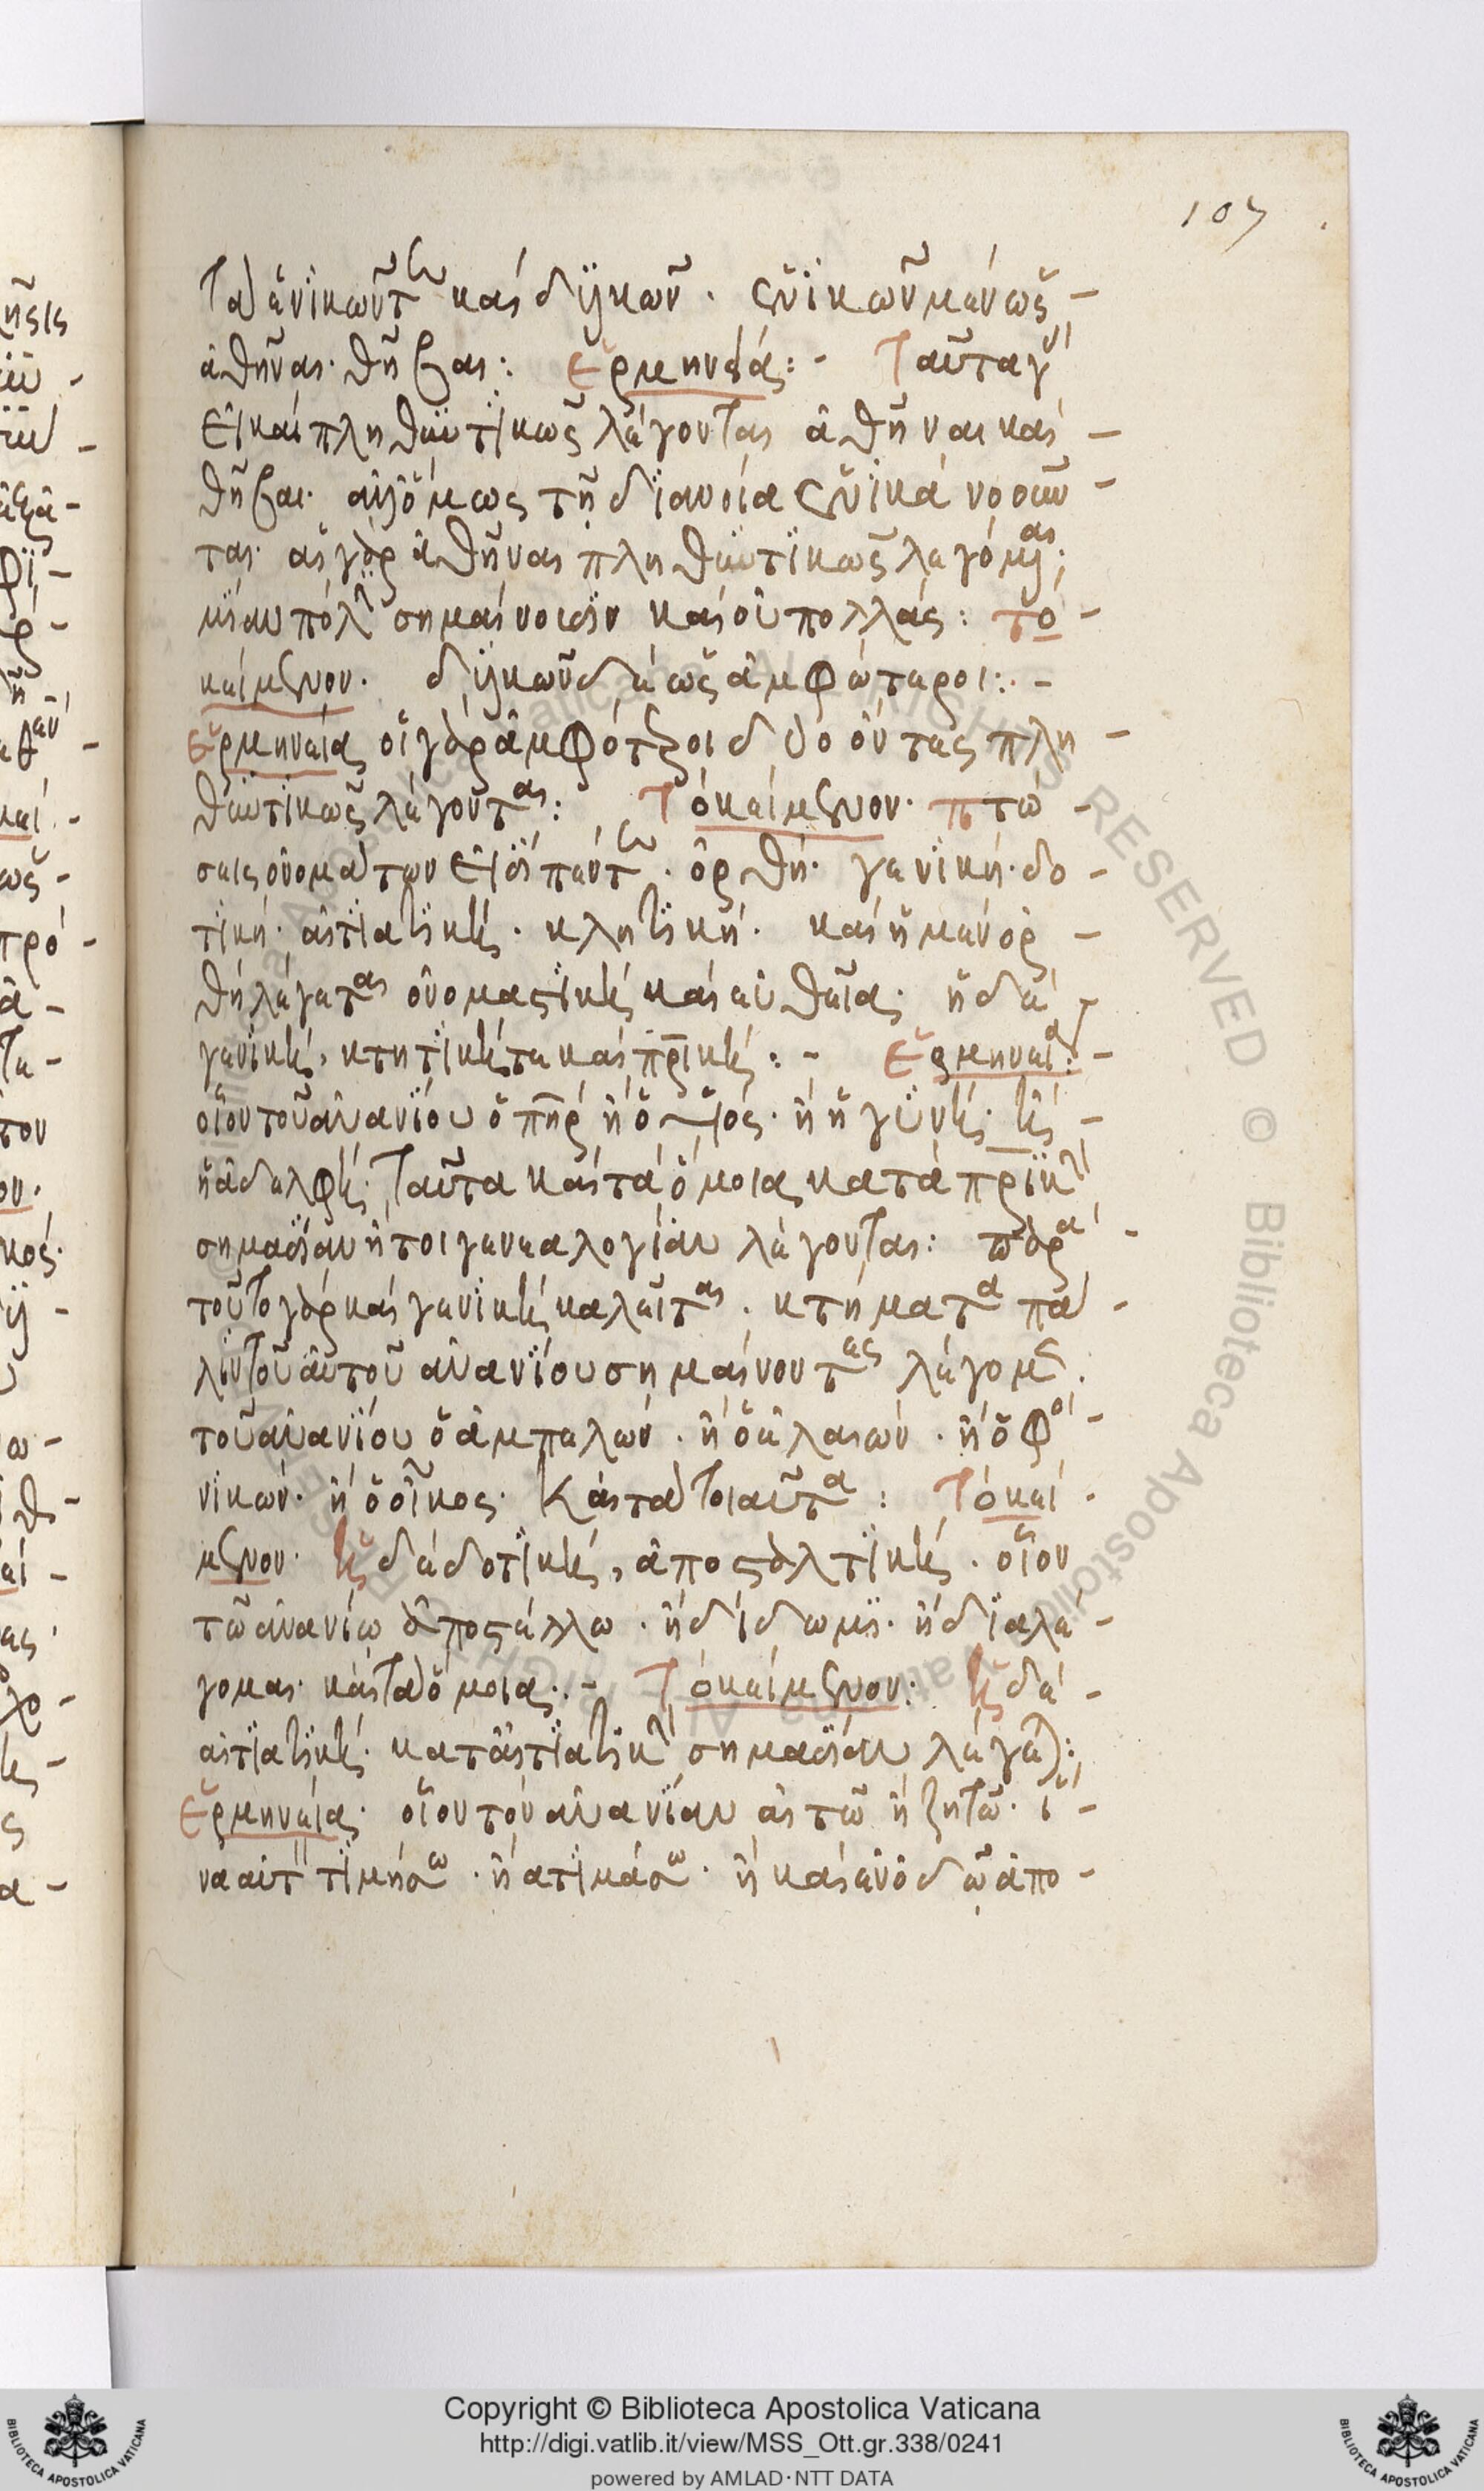 107
Τὰ ἑνικῶν τῶν καὶ δυϊκῶν. ἑνικῶν μὲν ὡς
ἀθῆναι. θῆβαι: Ἑρμηνεία: Ταῦτα γὰρ
εἰ καὶ πληθυντικῶς λέγονται ἀθῆναι καὶ
θῆβαι. ἀλλ' ὅμως τῇ διανοία ἑνικὰ νοοῦν
ται. αἱ γὰρ ἀθῆναι πληθυντικῶς λεγόμεναι;
μίαν πόλιν σημαίνουσιν καὶ οὐ πολλάς: τὸ
κείμενον. δυϊκῶν δὲ ὡς ἀμφότεροι:
Ἑρμηνεία οἱ γὰρ ἀμφότεροι δύο ὄντες πλη
θυντικῶς λέγονται: Τὸ κείμενον. πτώ
σεις ὀνομάτων εἰσὶ πέντε. ὀρθή. γενική. δο
τική. αἰτιατική. κλητική. καὶ ἡ μὲν ὀρ
θὴ λέγεται ὀνομαστικὴ καὶ εὐθεῖα. ἡ δὲ
γενική, κτητική τε καὶ πατρική: Ἑρμηνεία:
οἷον τοῦ ἀνανίου ὁ πατὴρ ἢ ὁ υἱός. ἢ ἡ γυνή. ἢ
ἡ ἀδελφή. Ταῦτα καὶ τὰ ὅμοια κατὰ πατρικὴν
σημασίαν ἤτοι γενεαλογίαν λέγονται: παρὰ
τοῦτο γὰρ καὶ γενικὴ καλεῖται. κτήματα πά
λιν τοῦ αὐτοῦ ἀνανίου σημαίνοντες λέγομεν.
τοῦ ἀνανίου ὁ ἀμπελών. ἢ ὁ ἐλαιών. ἢ ὁ φοι
νικών. ἢ ὁ οἶκος. Καὶ τὰ τοιαῦτα: Τὸ κεί
μενον. ἡ δὲ δοτική, ἀποσταλτική. οἷον
τῶ ἀνανίω ἀποστέλλω. ἢ δίδωμι. ἢ διαλέ
γομαι. καὶ τὰ ὅμοια. Τὸ κείμενον: ἡ δὲ
αἰτιατική. κατ' αἰτιατικὴν σημασίαν λέγεται:
Ἑρμηνεία. οἷον τὸν ἀνανίαν αἰτῶ ἢ ζητῶ. ἵ
να αὐτὸν τιμήσω. ἢ ἀτιμάσω. ἢ καὶ ἐν ὁδῶ ἀπο
Copyright © Biblioteca Apostolica Vaticana
http://digi.vatlib.it/view/MSS_Ott.gr.338/0241
powered by AMLAD·NTT DATA